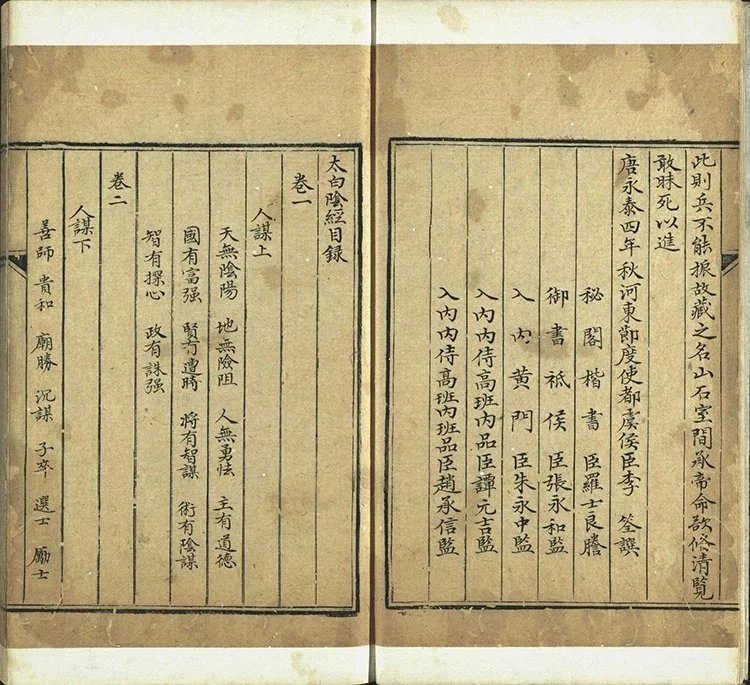 此則兵不能振故藏之名山石室間承帝命欲俻清覽
敢昧死以進
唐永泰四年秋河東節度使都虞侯臣李 筌譔
秘閣楷書臣羅士良謄
御書祗侯臣張永和監
入內黃門臣朱永中監
入內內侍高班內品臣譚元吉監
入內內侍高班內班品臣趙承信監
太白陰經目録
卷一
人謀上
天無陰陽 地無險阻 人無勇怯 主有道德
國有富强 賢有遭時 將有智謀 術有陰謀
智有探心 政有誅强
卷二
人謀下
善師 貴和 廟勝 沉謀 子卒 選士 勵士